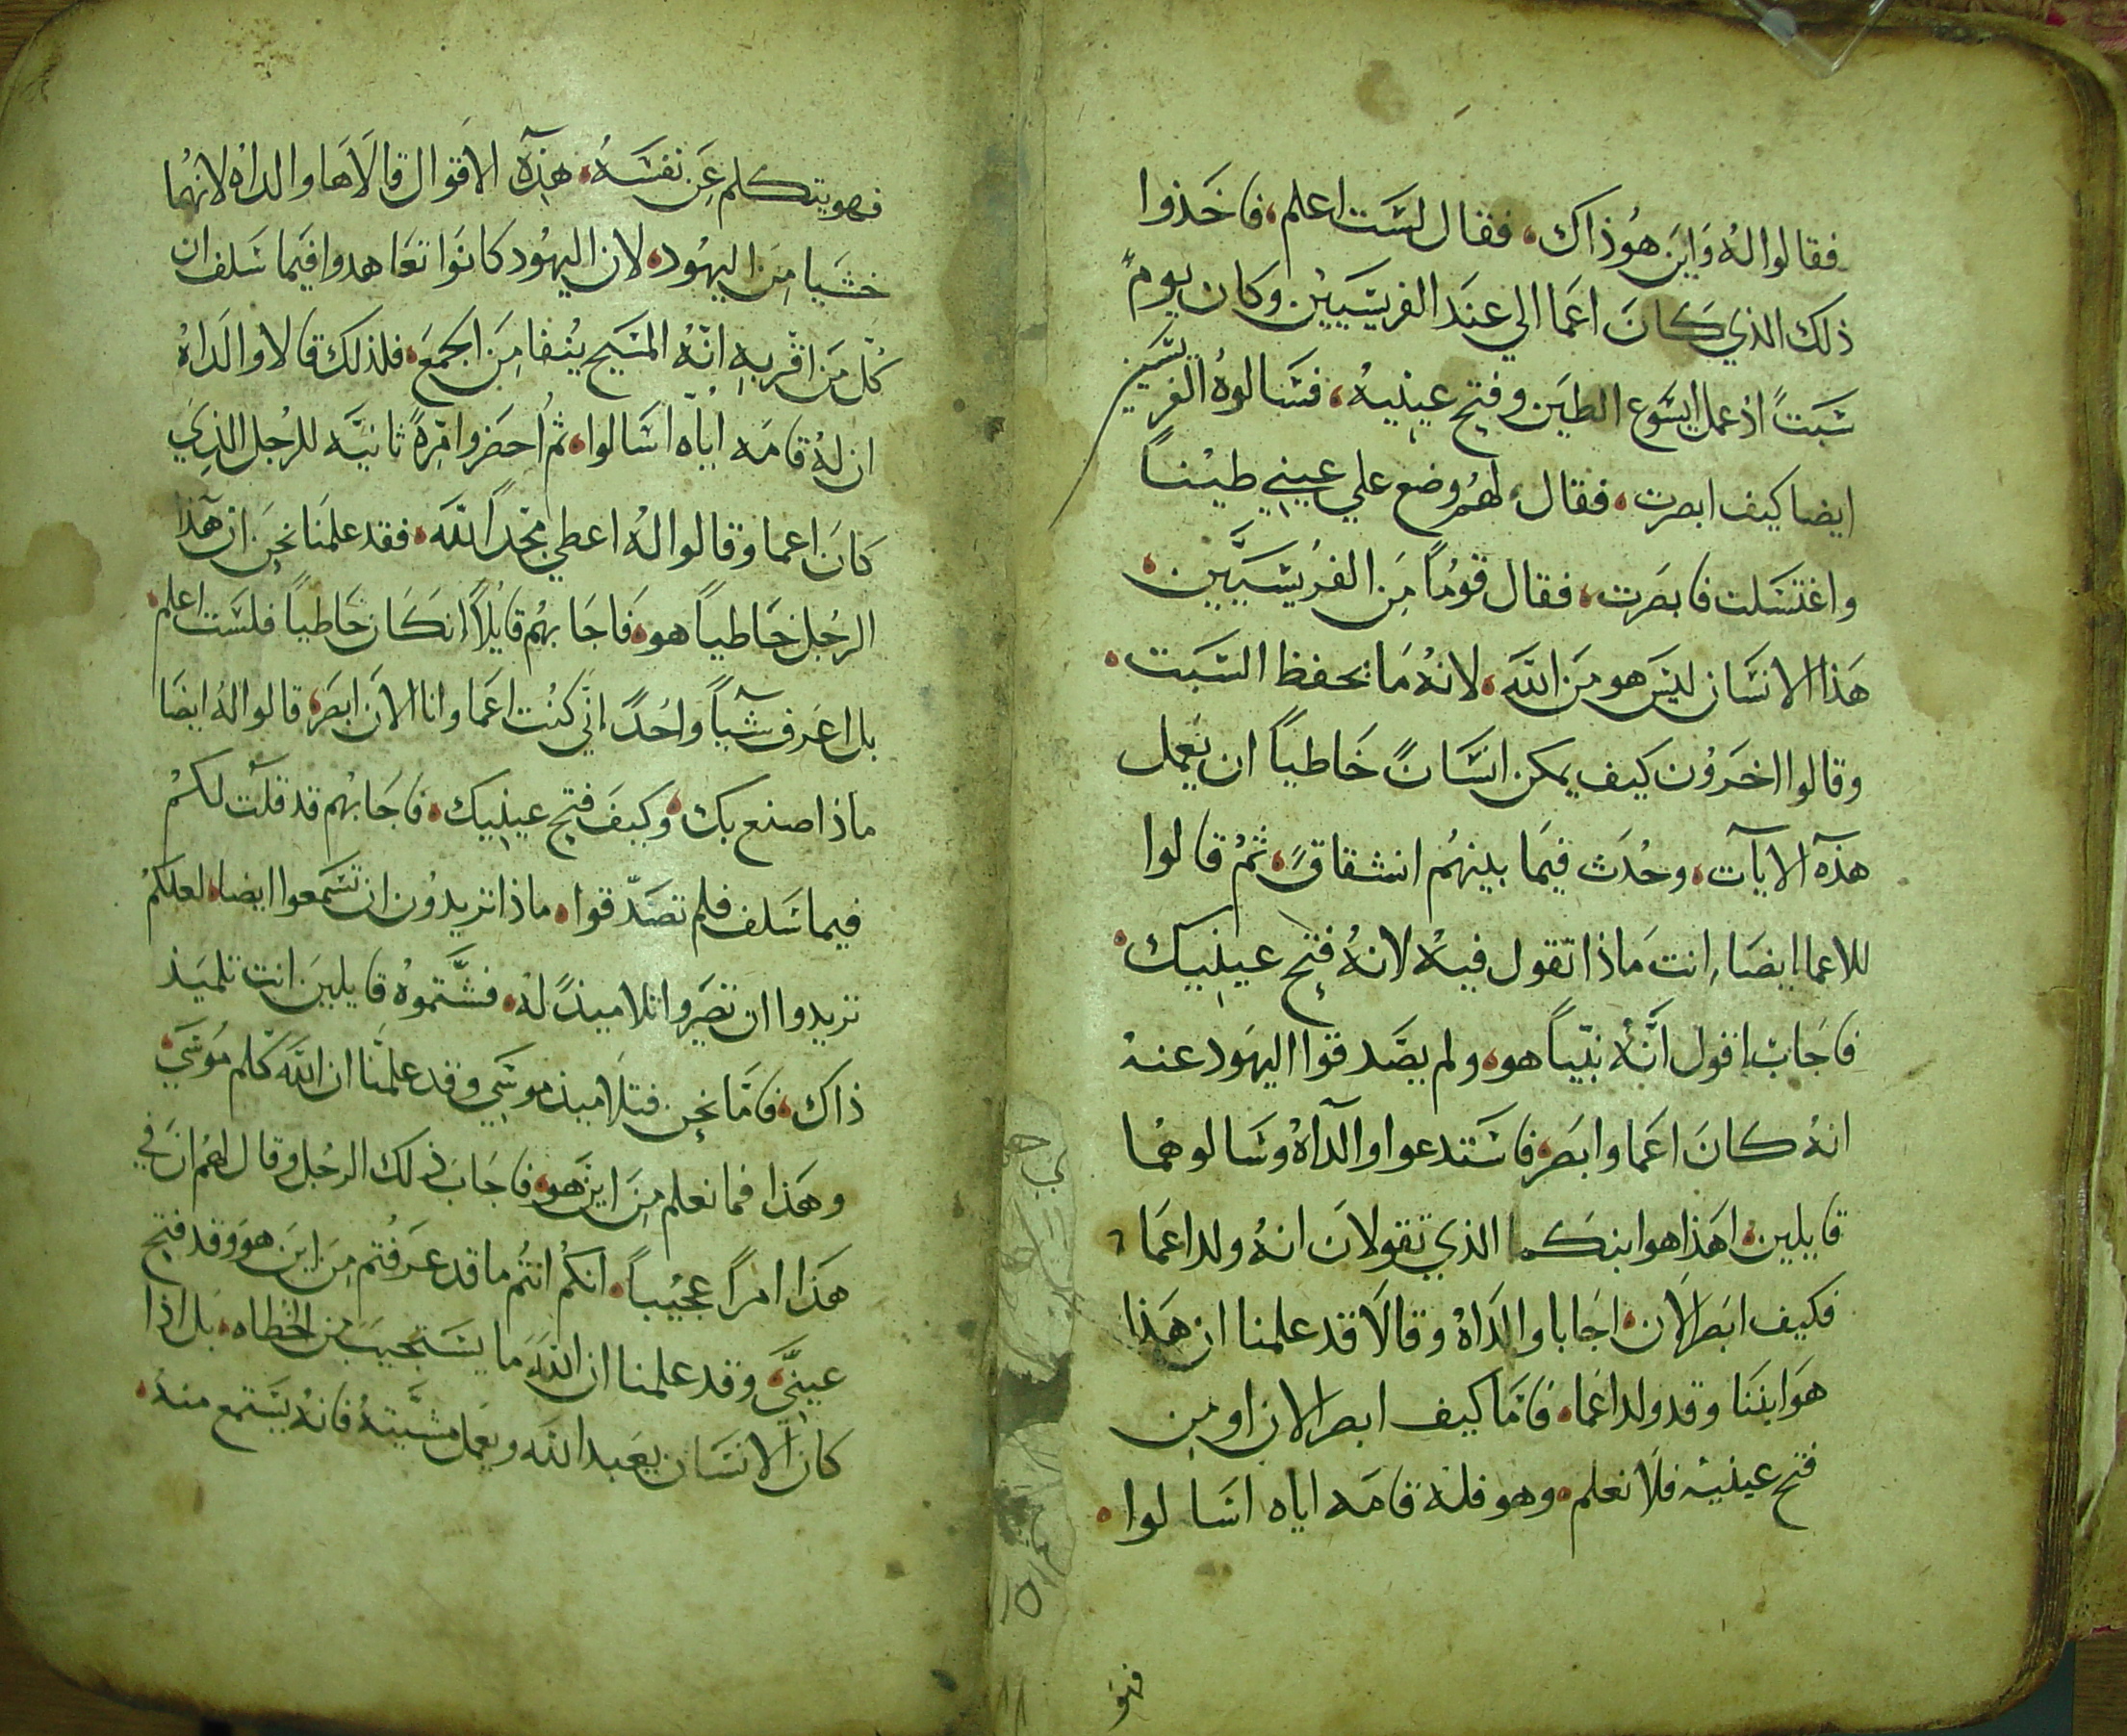 فقالوا لهُ وَاين هُوذاك، فقال لسَت اعلم، فاخَذوا
ذلك الذي كَانَ اعَما الي عندَ الفريسَيين وكان يومً
سَبتً اذ عمل ايسَوع الطين وفتح عينيهُ، فسَالوهُ الفريسين
ايضا كيف ابصرت، فقال لهُم وضع علي عيني طينًا
واغتسَلت فابصَرت، فقال قومًا مَن الفُريسَيَّين،
هَذا الانسَان ليَس هو مَن اللَّه، لانهُ مَا يحفظ السَبت،
وقالوا اخَروُن كيف يمكن انسَانً خَاطياً ان يَعمل
هذه الايآت، وحُدَث فيمَا بينهُم انشقاقً، ثمُ قالوا
للاعما ايضَا، انت مَاذا تقول فيهُ لانهُ فتح عينيك،
فاجَاب اقول انَّهُ نبيّاً هو، ولم يصَّدقوا اليهَود عنهُ
انهُ كانَ اعَما وابصَر، فاسَتدعوا والدَاهُ وسَالوهُما
قايلين، اهَذا هوا بنكما الذي تقولان انهُ ولد اعَما،
فكيف ابصَر الان، اجَابا والدَاهُ وقالَا قد علمنا ان هَذا
هَوا بننا وقد ولد اعَما، فامَّا كيف ابصر الان او من
فتح عينيه فلَا نعلم، وهو فلهُ قامَه اياه اسَالوا،
فهو
فهو يتكلم عَن نفسَهُ، هذِه الاقوال قالَاهَا والداهُ لانهُما
خشَيا مِن اليهُود، لان اليهُود كانوَا تعَاهدوا فيمَا سَلف ان
كُلّ مَن اقر بهِ انّهُ المسَيح يُنفا مِنَ الجمعَ، فلذلك قالا والدَاهُ
ان لهُ قامَه اياه اسَالوا، ثمُ احضَروا مَرةً ثانيَّه للرُجل الذِي
كانَ اعما وقالوا لهُ اعطي مجداً للَّه، فقد علمنَا نحن ان هَذا
الرجُل خَاطياً هو، فَاجَابهُم قايُلاً انكَان خَاطياً فلسَت اعلم،
بل اعَرف شَيآً واحُدً اني كنُت اعَما وانا الآن ابصَر، قالوا لهُ ايضَا
ماذا صنع بك، وكيفَ فتح عينيك، فاجَابهُم قد قلت لكمُ
فيما سَلف فلم تصَدّقوا، ماذا تريدوُن ان تسَمعوا ايضا، لعلكمُ
تريدوا ان تصَروا تلاميذً لهُ، فشَّتموهُ قايلينَ انت تلميَذ
ذاك، فامَّا نحن فتلَاميذ موسَي وقد علمَّنا ان اللَّه كلم مَوُسَي،
وهَذا فما نعلم مِنَ اين هَو، فاجَابَ ذلك الرجُل وقال لهُم ان في
هَذا امراً عجُيباً، انكمُ انتُم ما قد عرَفتُم مِن اين هوَ وقد فتح
عينيَّ، وقد علمنا ان اللَّه ما يسَتجيب من الخطاه، بَل اذا
كان الانسَان يعَبد اللَّه ويعَمل مشَيته فانهُ يسَتمع منهُ،